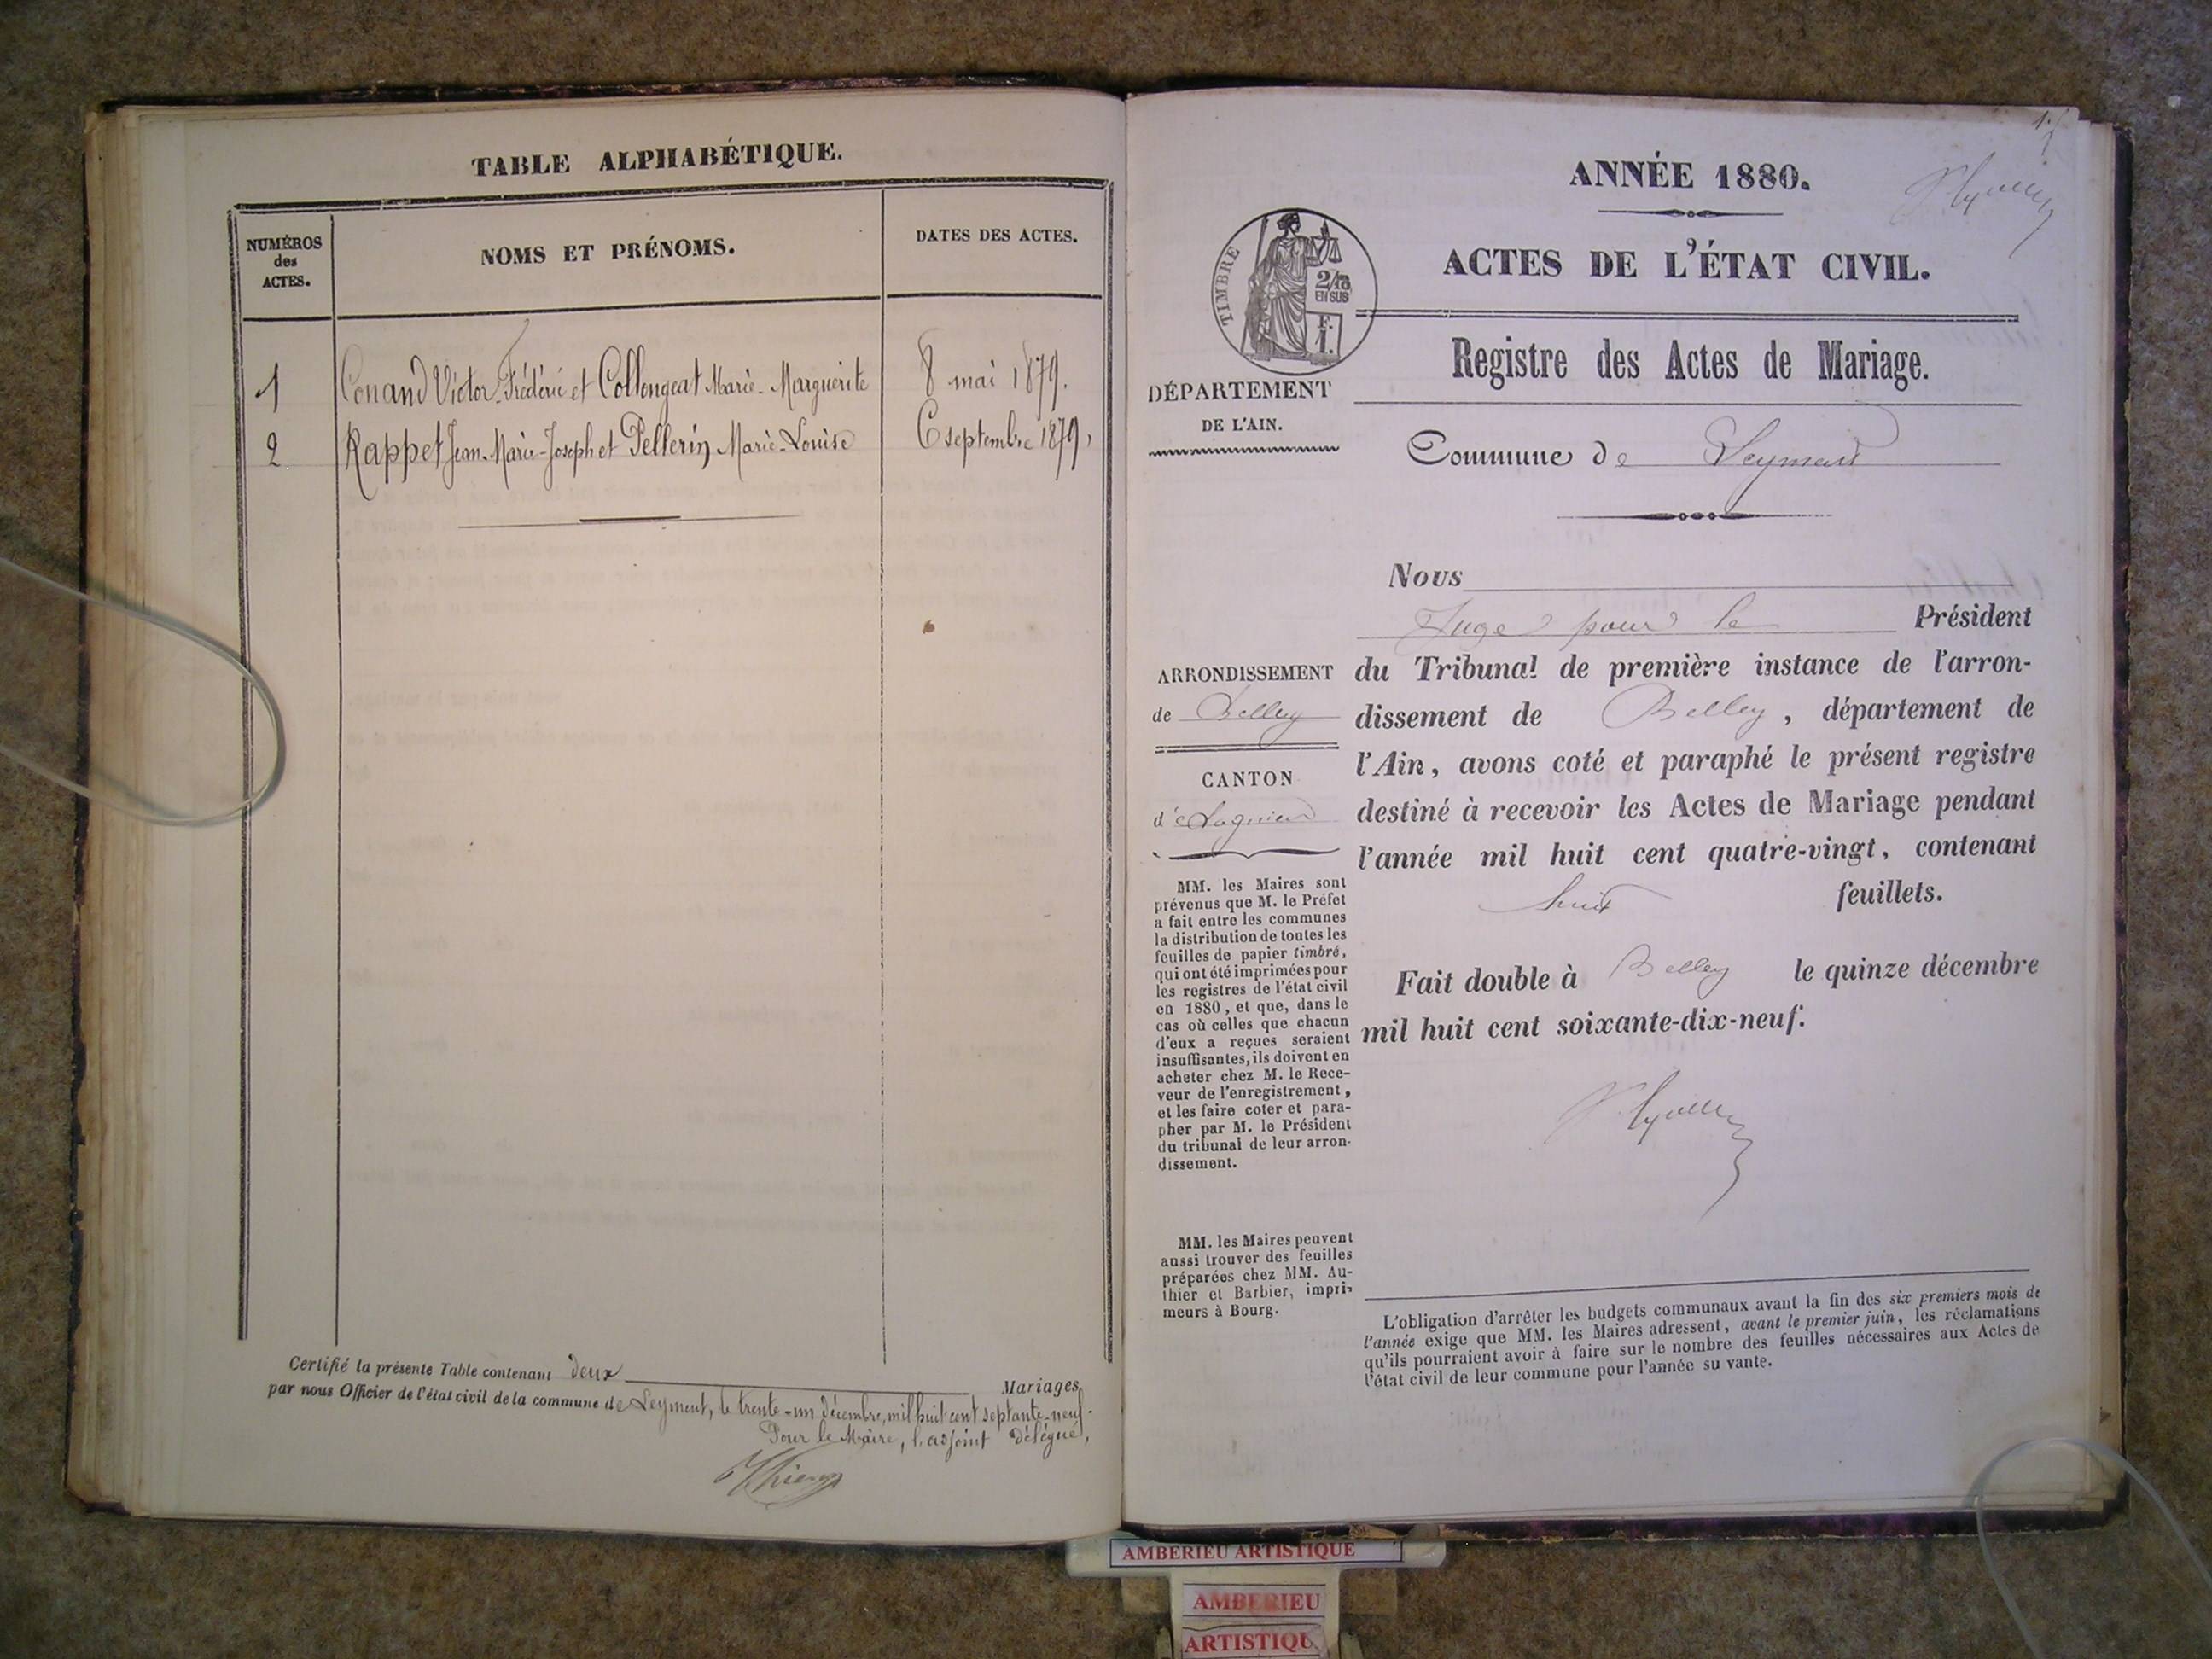 TABLE ALPHABÉTIQUE.
NUMÉROS
des
ACTES.
NOMS ET PRÉNOMS.
DATES DES ACTES.
1 Conand Victor-Frédéric et Collongeat Marie-Marguerite 8 mai 1879.
2 Rappet Jean-Marie-Joseph et Pellerin Marie-Louise 6 septembre 1879,
Certifié la présente Table contenant deux Mariages,
par nous Officier de l'état civil de la commune de Leyment, le trente-un décembre, mil huit cent septante-neuf.
Pour le Maire, l'adjoint délégué,
ANNÉE 1880.
ACTES DE L'ÉTAT CIVIL.
TIMBRE
2/10
EN SUS
F.
1.
Registre des Actes de Mariage.
DÉPARTEMENT
DE L'AIN.
Commune de Leyment
Nous
Juge pour le Président
du Tribunal de première instance de l'arron-
dissement de Belley, département de
l'Ain, avons coté et paraphé le présent registre
destiné à recevoir les Actes de Mariage pendant
l'année mil huit cent quatre-vingt, contenant
huit feuillets.
Fait double à Belley le quinze décembre
mil huit cent soixante-dix-neuf.
ARRONDISSEMENT
de Belley
CANTON
de Lagnieu
MM. les Maires sont
prévenus que M. le Préfet
a fait entre les communes
la distribution de toutes les
feuilles de papier timbré,
qui ont été imprimées pour
les registres de l'état civil
en 1880, et que, dans le
cas où celles que chacun
d'eux a reçues seraient
insuffisantes, ils doivent en
acheter chez M. le Rece-
veur de l'enregistrement,
et les faire coter et para-
pher par M. le Président
du tribunal de leur arron-
dissement.
MM. les Maires peuvent
aussi trouver des feuilles
préparées chez MM. Au-
thier et Barbier, impri-
meurs à Bourg.
L'obligation d'arrêter les budgets communaux avant la fin des six premiers mois de
l'année exige que MM. les Maires adressent, avant le premier juin, les réclamations
qu'ils pourraient avoir à faire sur le nombre des feuilles nécessaires aux Actes de
l'état civil de leur commune pour l'année su vante.
AMBERIEU ARTISTIQUE
AMBERIEU
ARTISTIQU